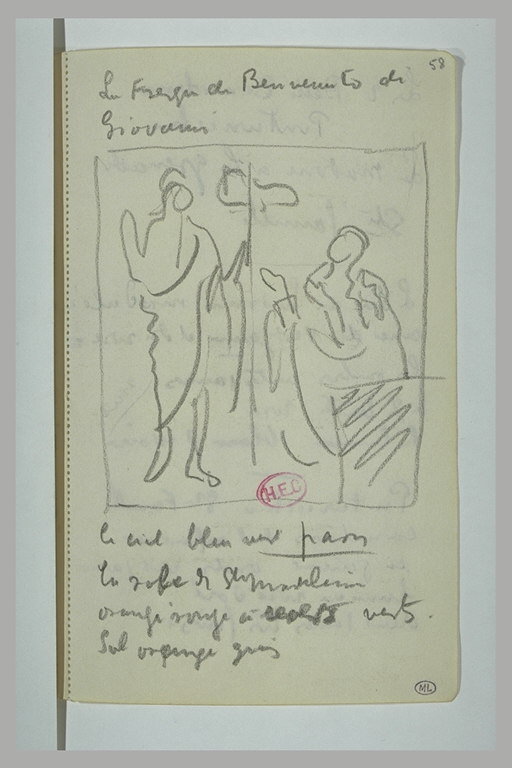 58
La Frega de Benvenuto di
Giovanni
H.E.C
le ciel bleu vert paon
la robe de Ste madeleine
orange rouge à revers verts.
Sol orange gris
ML